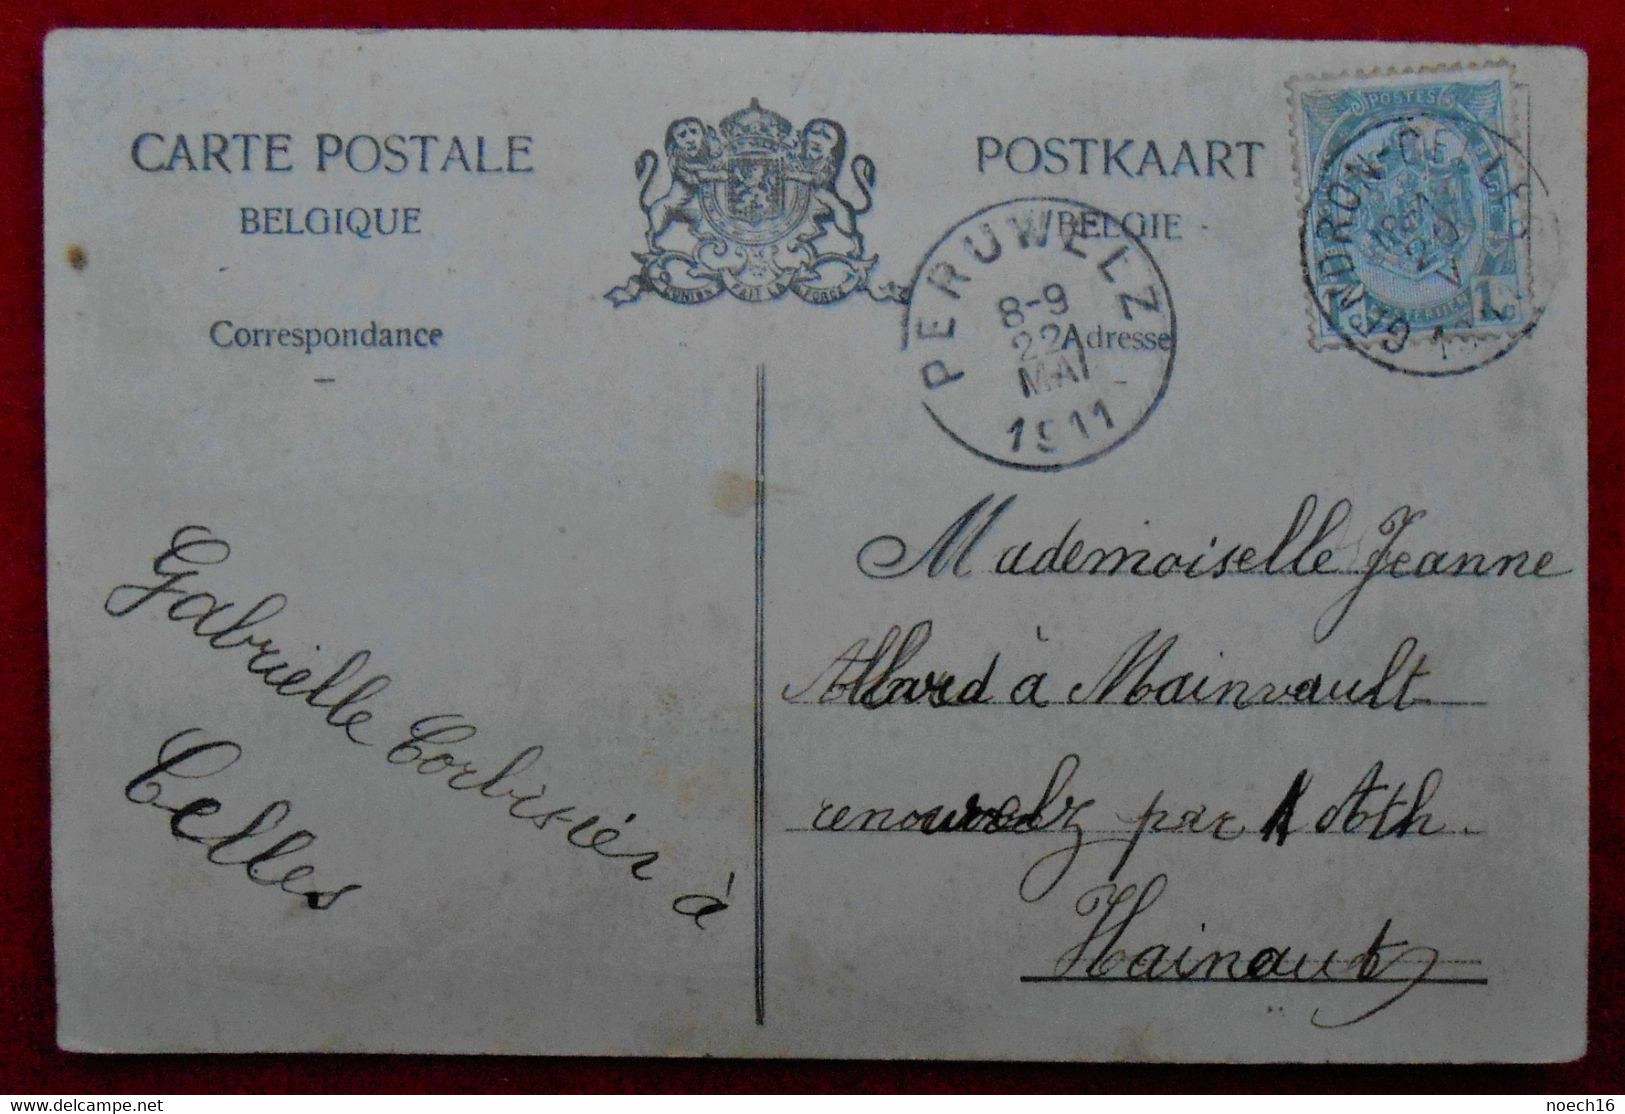 CARTE POSTALE
BELGIQUE
Correspondance
L'UNION FAIT LA FORCE
POSTKAART
BELGIE
Adresse
PERUWELZ
8-9
22
MAI
1911
POSTES
GENDRON-CELLES
1
Gabrielle Corbisier à
Celles
Mademoiselle Jeanne
Allard à Mainvault
par Ath
Hainaut
noech16
delcampe.net